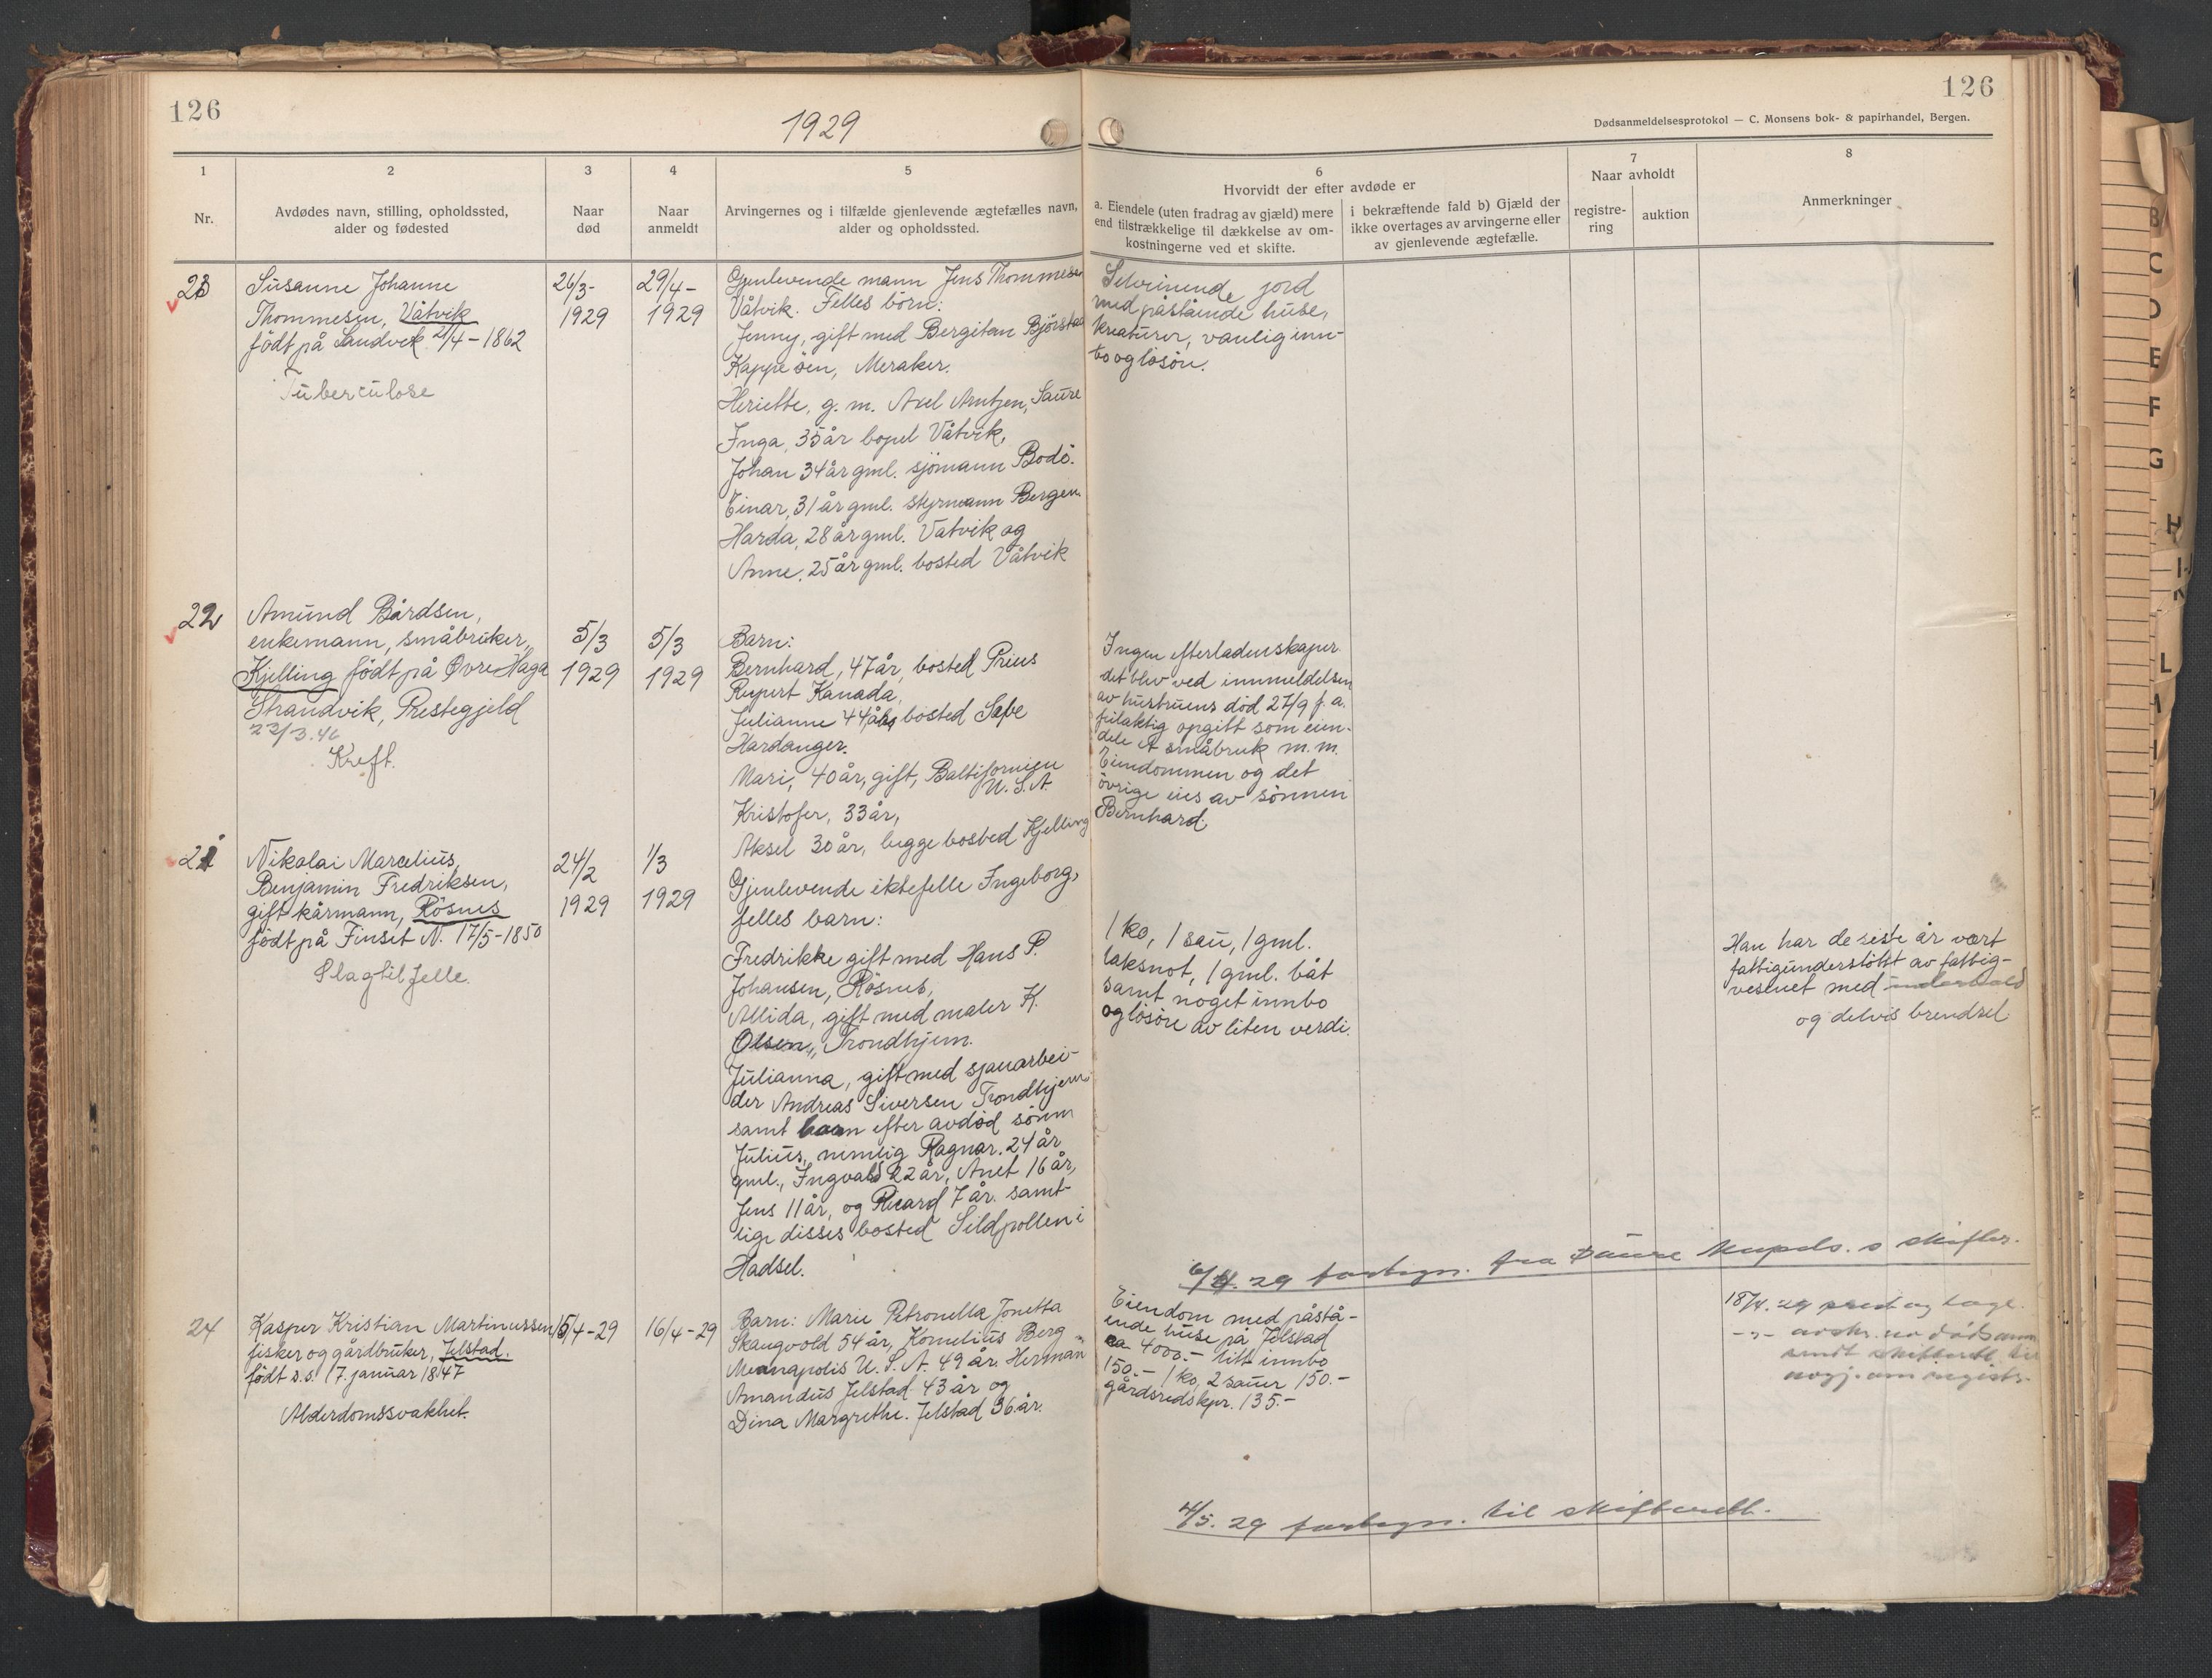 126
1929
126
Dødsanmeldelsesprotokol — C. Monsens bok- & papirhandel, Bergen.
1
Nr.
2
Avdødes navn, stilling, opholdssted,
alder og fødested
3
Naar
død
4
Naar
anmeldt
5
Arvingernes og i tilfælde gjenlevende ægtefælles navn,
alder og opholdssted.
6
Hvorvidt der efter avdøde er
a. Eiendele (uten fradrag av gjæld) mere
end tilstrækkelige til dækkelse av om-
kostningerne ved et skifte.
i bekræftende fald b) Gjæld der
ikke overtages av arvingerne eller
av gjenlevende ægtefælle.
7
Naar avholdt
registre-
ring
auktion
8
Anmerkninger
23
Susanne Johanne
Thommesen, Våtvik
født på Sandvik 21/4-1862
Tuberculose
26/3-
1929
29/4-
1929
Gjenlevende mann Jens Thommesen
Våtvik. Felles børn:
Jenny, gift med Bergitan Bjørstad
Kappeøen, Meraker.
Heriette, g. m. Axel Arntzen, Saure
Inga, 35 år bopel Våtvik,
Johan 34 år gml. sjømann Bodø.
Einar, 31 år gml. styrmann Bergen.
Harda, 28 år gml. Vatvik og
Anne, 25 år gml. bosted Våtvik
Selveiende jord
med påstående huse,
kreaturer, vanlig inn-
bo og løsøre.
22
Amund Bårdsen,
enkemann, småbruker,
Kjelling født på Øvre Haga
Strandvik, Prestegjeld
22/3.46
Kreft.
5/3
1929
5/3
1929
Barn:
Bernhard, 47 år, bosted Prins
Rupert Kanada,
Julianne 44 år, bosted Saxe
Hardanger.
Mari, 40 år, gift, Baltifornien
U. S. A.
Kristofer, 33 år,
Aksel 30 år, begge bosted Kjelling
Ingen efterladenskaper
det blev ved innmeldelsen
av hustruens død 27/9 f. a.
feilaktig opgitt som eien-
dele et småbruk m. m.
Eiendommen og det
øvrige eies av sønnen
Bernhard
21
Nikolai Marcelius,
Benjamin Fredriksen,
gift kårmann, Røsnes
født på Finset N. 17/5-1850
Slagtilfelle.
24/2
1929
1/3
1929
Gjenlevende ektefelle Ingeborg,
felles barn:
Fredrikke gift med Hans P.
Johansen, Røsnes,
Allida, gift med maler K.
Olsen, Trondhjem.
Julianna, gift med sjauarbei-
der Andreas Siversen Trondhjem
samt barn efter avdød sønn
Julius, nemlig Ragnar. 24 år
gml., Ingvald 22 år, Anet 16 år,
Jens 11 år, og Ricard 7 år. samt-
lige disses bosted Sildpollen i
Hadsel.
1 ko, 1 sau, 1 gml.
laksnot, 1 gml. båt
samt noget innbo
og løsøre av liten verdi.
Han har de siste år vært
fattigunderstøttet av fattig-
vesenet med underhold
og delvis brendsel
6/4. 29 fortegn. fra Saure skifter.
24
Kasper Kristian Martinussen
fisker og gårdbruker, Jelstad.
født s.s. 17. januar 1847
Alderdomssvakhet.
15/4-29
16/4-29
Barn: Marie Petronella Jonetta
Skaugvold 54 år, Kornelius Berg
Menapolis U. S. A. 49 år. Herman
Amandus Jelstad 43 år og
Dina Margrethe. Jelstad 36 år.
Eiendom med påstå-
ende huse på Jelstad
ca 4000.- litt innbo
150.- 1 ko, 2 sauer 150.-
gårdsredskpr. 135.-
18/4. 29
4/5. 29 fortegn. til skifterett.